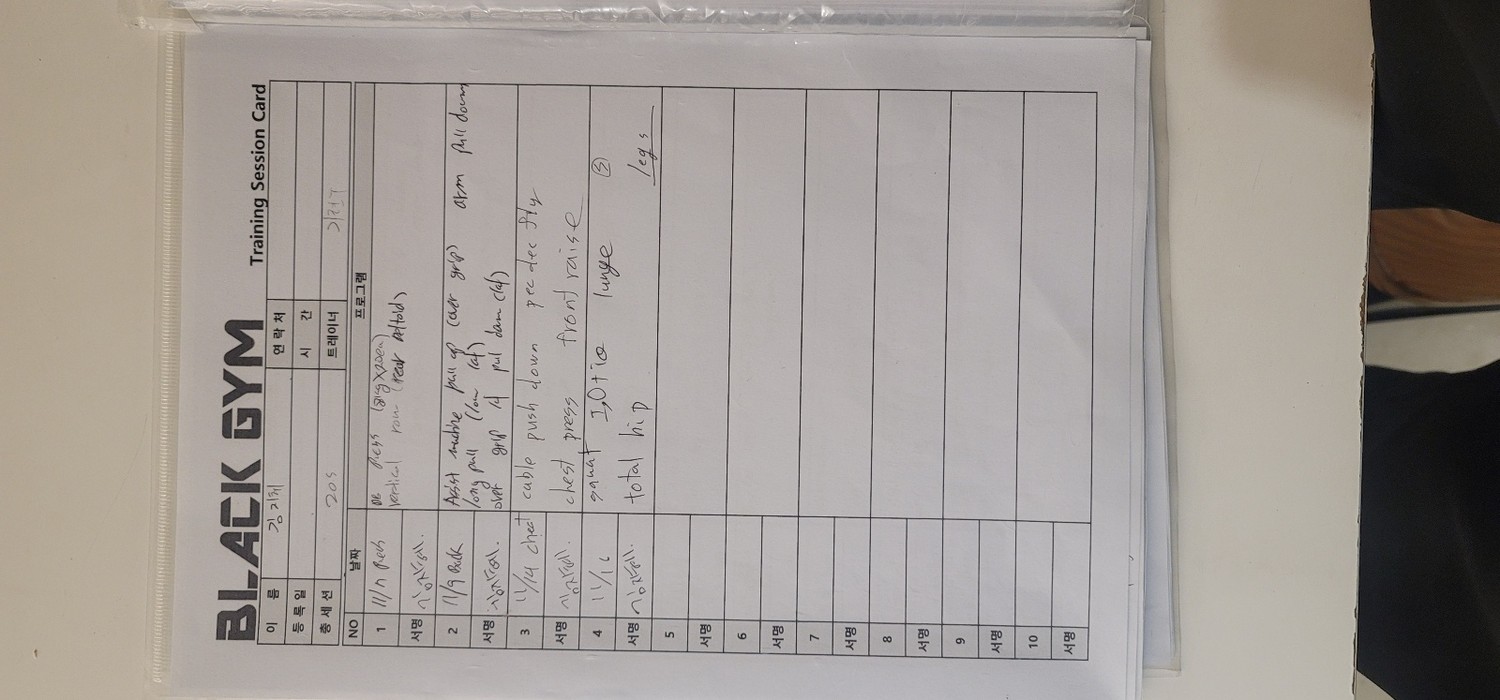 BLACK GYM
Training Session Card
이 름 김지혜 연락처
등록일 시 간
총세션 20s 트레이너
NO 날짜 프로그램
1 11/7 press (rear deltoid)
서명 vertical row
2 11/9 Back Assist machine pull up (over grip) arm pull down
long pull (low lat)
서명 over grip lat pull down (lat)
3 11/14 chest cable push down pec dec fly
서명 chest press front raise
4 11/16 squat lunge ③
서명 total hip legs
5
서명
6
서명
7
서명
8
서명
9
서명
10
서명